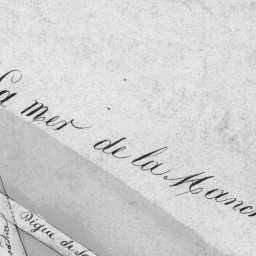 La mer de la Manch
Digue de